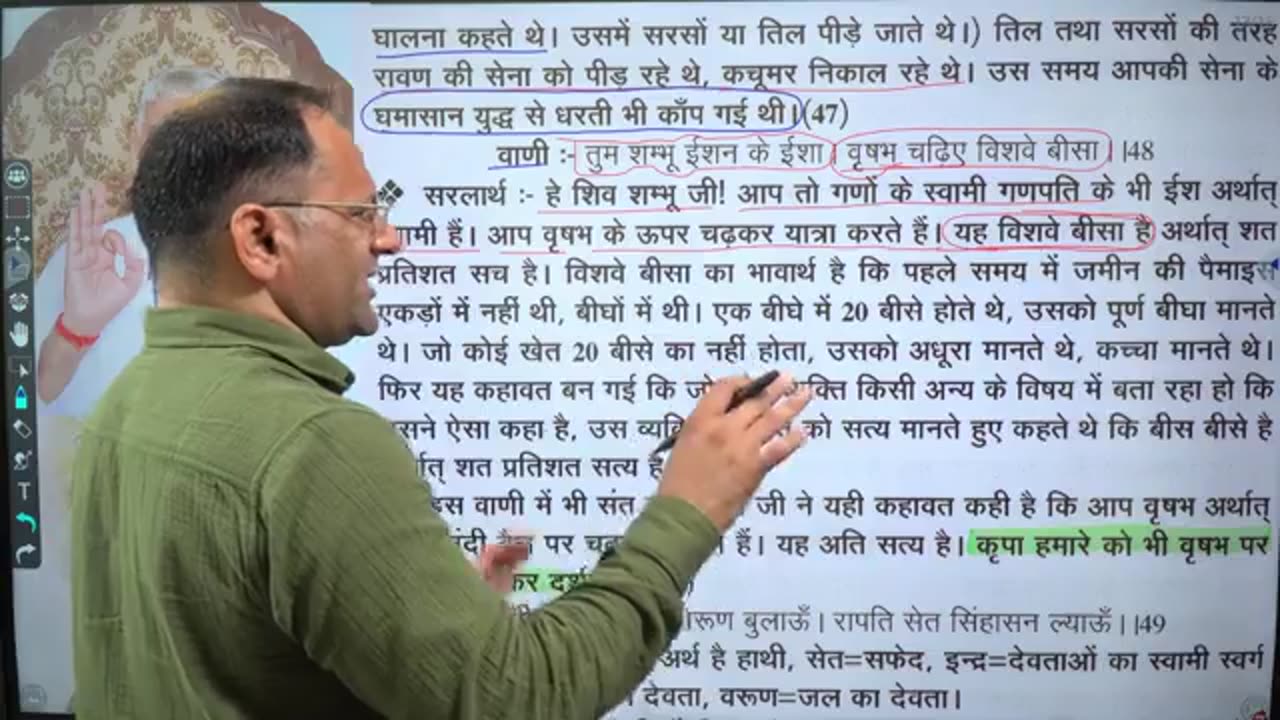 घालना कहते थे। उसमें सरसों या तिल पीड़े जाते थे।) तिल तथा सरसों की तरह
रावण की सेना को पीड़ रहे थे, कचूमर निकाल रहे थे। उस समय आपकी सेना के
घमासान युद्ध से धरती भी काँप गई थी।(47)
वाणी :- तुम शम्भू ईशन के ईशा। वृषभ चढ़िए विशवे बीसा। ।48
❖ सरलार्थ :- हे शिव शम्भू जी! आप तो गणों के स्वामी गणपति के भी ईश अर्थात्
हैं। आप वृषभ के ऊपर चढ़कर यात्रा करते हैं। यह विशवे बीसा है अर्थात् शत
प्रतिशत सच है। विशवे बीसा का भावार्थ है कि पहले समय में जमीन की पैमाइस
एकड़ों में नहीं थी, बीघों में थी। एक बीघे में 20 बीसे होते थे, उसको पूर्ण बीघा मानते
थे। जो कोई खेत 20 बीसे का नहीं होता, उसको अधूरा मानते थे, कच्चा मानते थे।
फिर यह कहावत बन गई कि किसी अन्य के विषय में बता रहा हो कि
ऐसा कहा है, उस को सत्य मानते हुए कहते थे कि बीस बीसे है
शत प्रतिशत सत्य
इस वाणी में भी संत जी ने यही कहावत कही है कि आप वृषभ अर्थात्
पर हैं। यह अति सत्य है। कृपा हमारे को भी वृषभ पर
बुलाऊँ। रापति सेत सिंहासन ल्याऊँ। ।49
अर्थ है हाथी, सेत=सफेद, इन्द्र=देवताओं का स्वामी स्वर्ग
देवता, वरूण=जल का देवता।
T